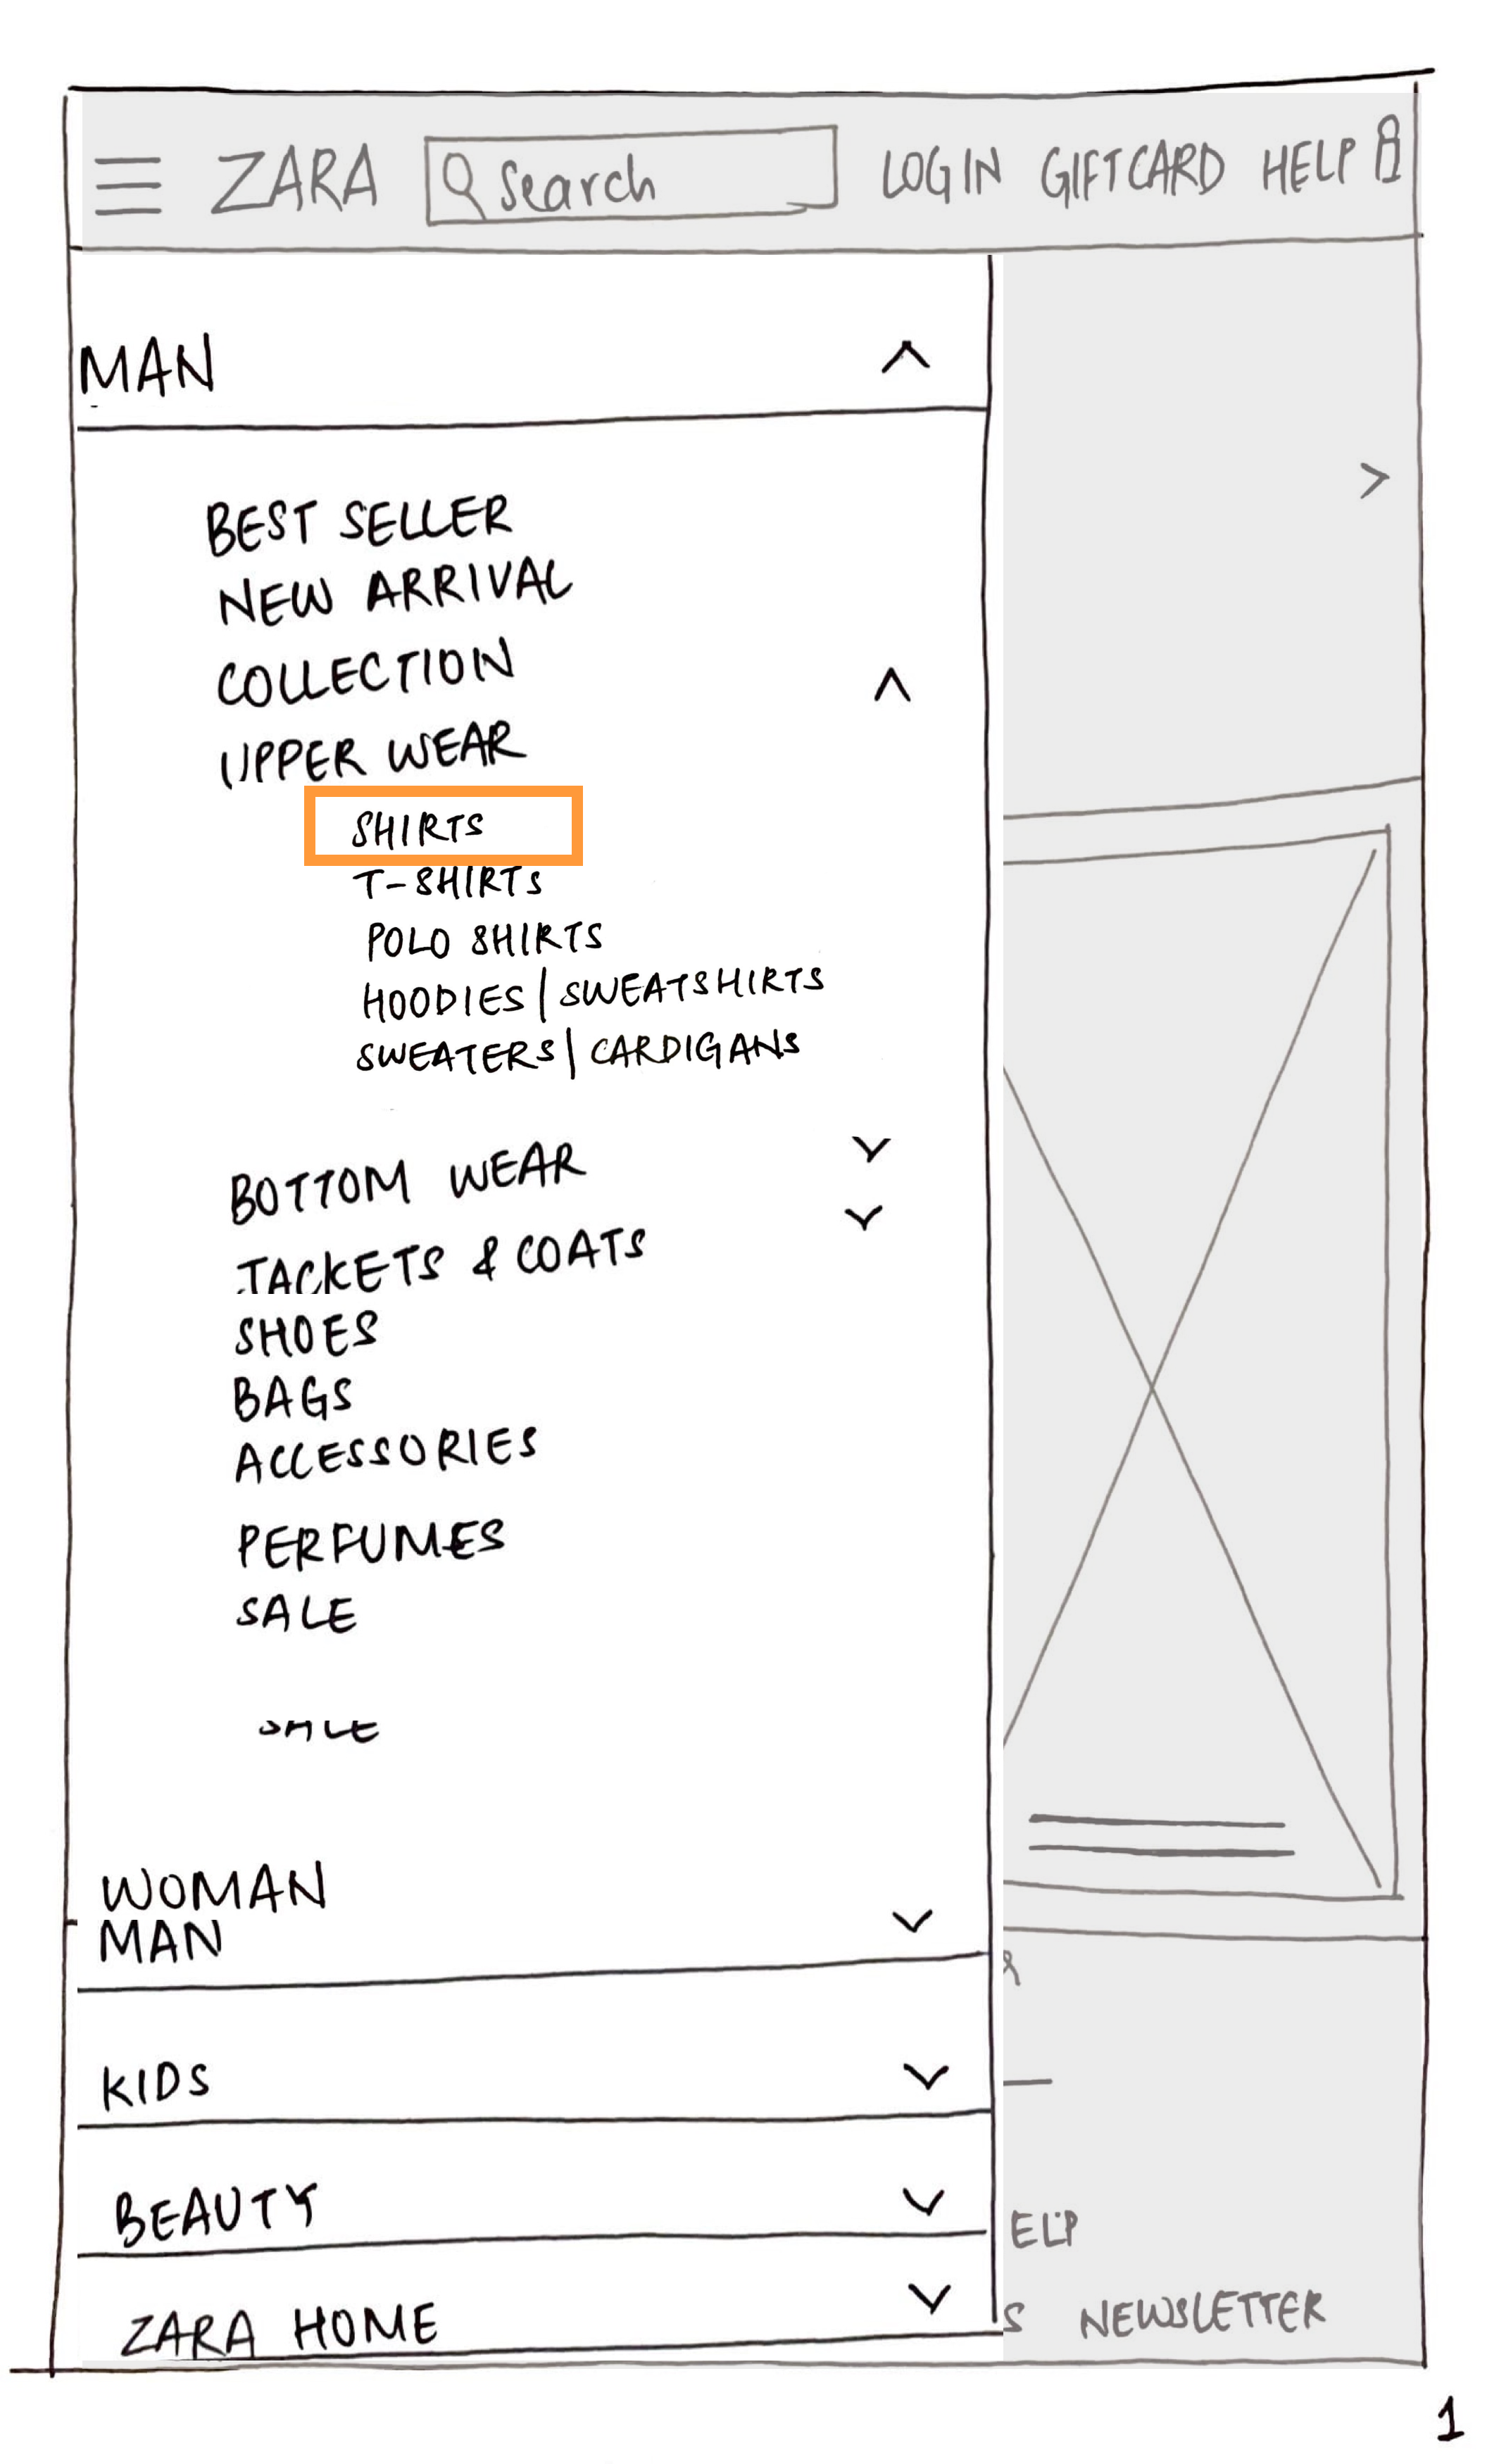 ZARA Search LOGIN GIFTCARD HELP
MAN
BEST SELLER
NEW ARRIVAL
COLLECTION
UPPER WEAR
SHIRTS
T-SHIRTS
POLO SHIRTS
HOODIES | SWEATSHIRTS
SWEATERS | CARDIGANS
BOTTOM WEAR
JACKETS & COATS
SHOES
BAGS
ACCESSORIES
PERFUMES
SALE
SALE
WOMAN
MAN
KIDS
BEAUTY
ELP
ZARA HOME
S NEWSLETTER
1